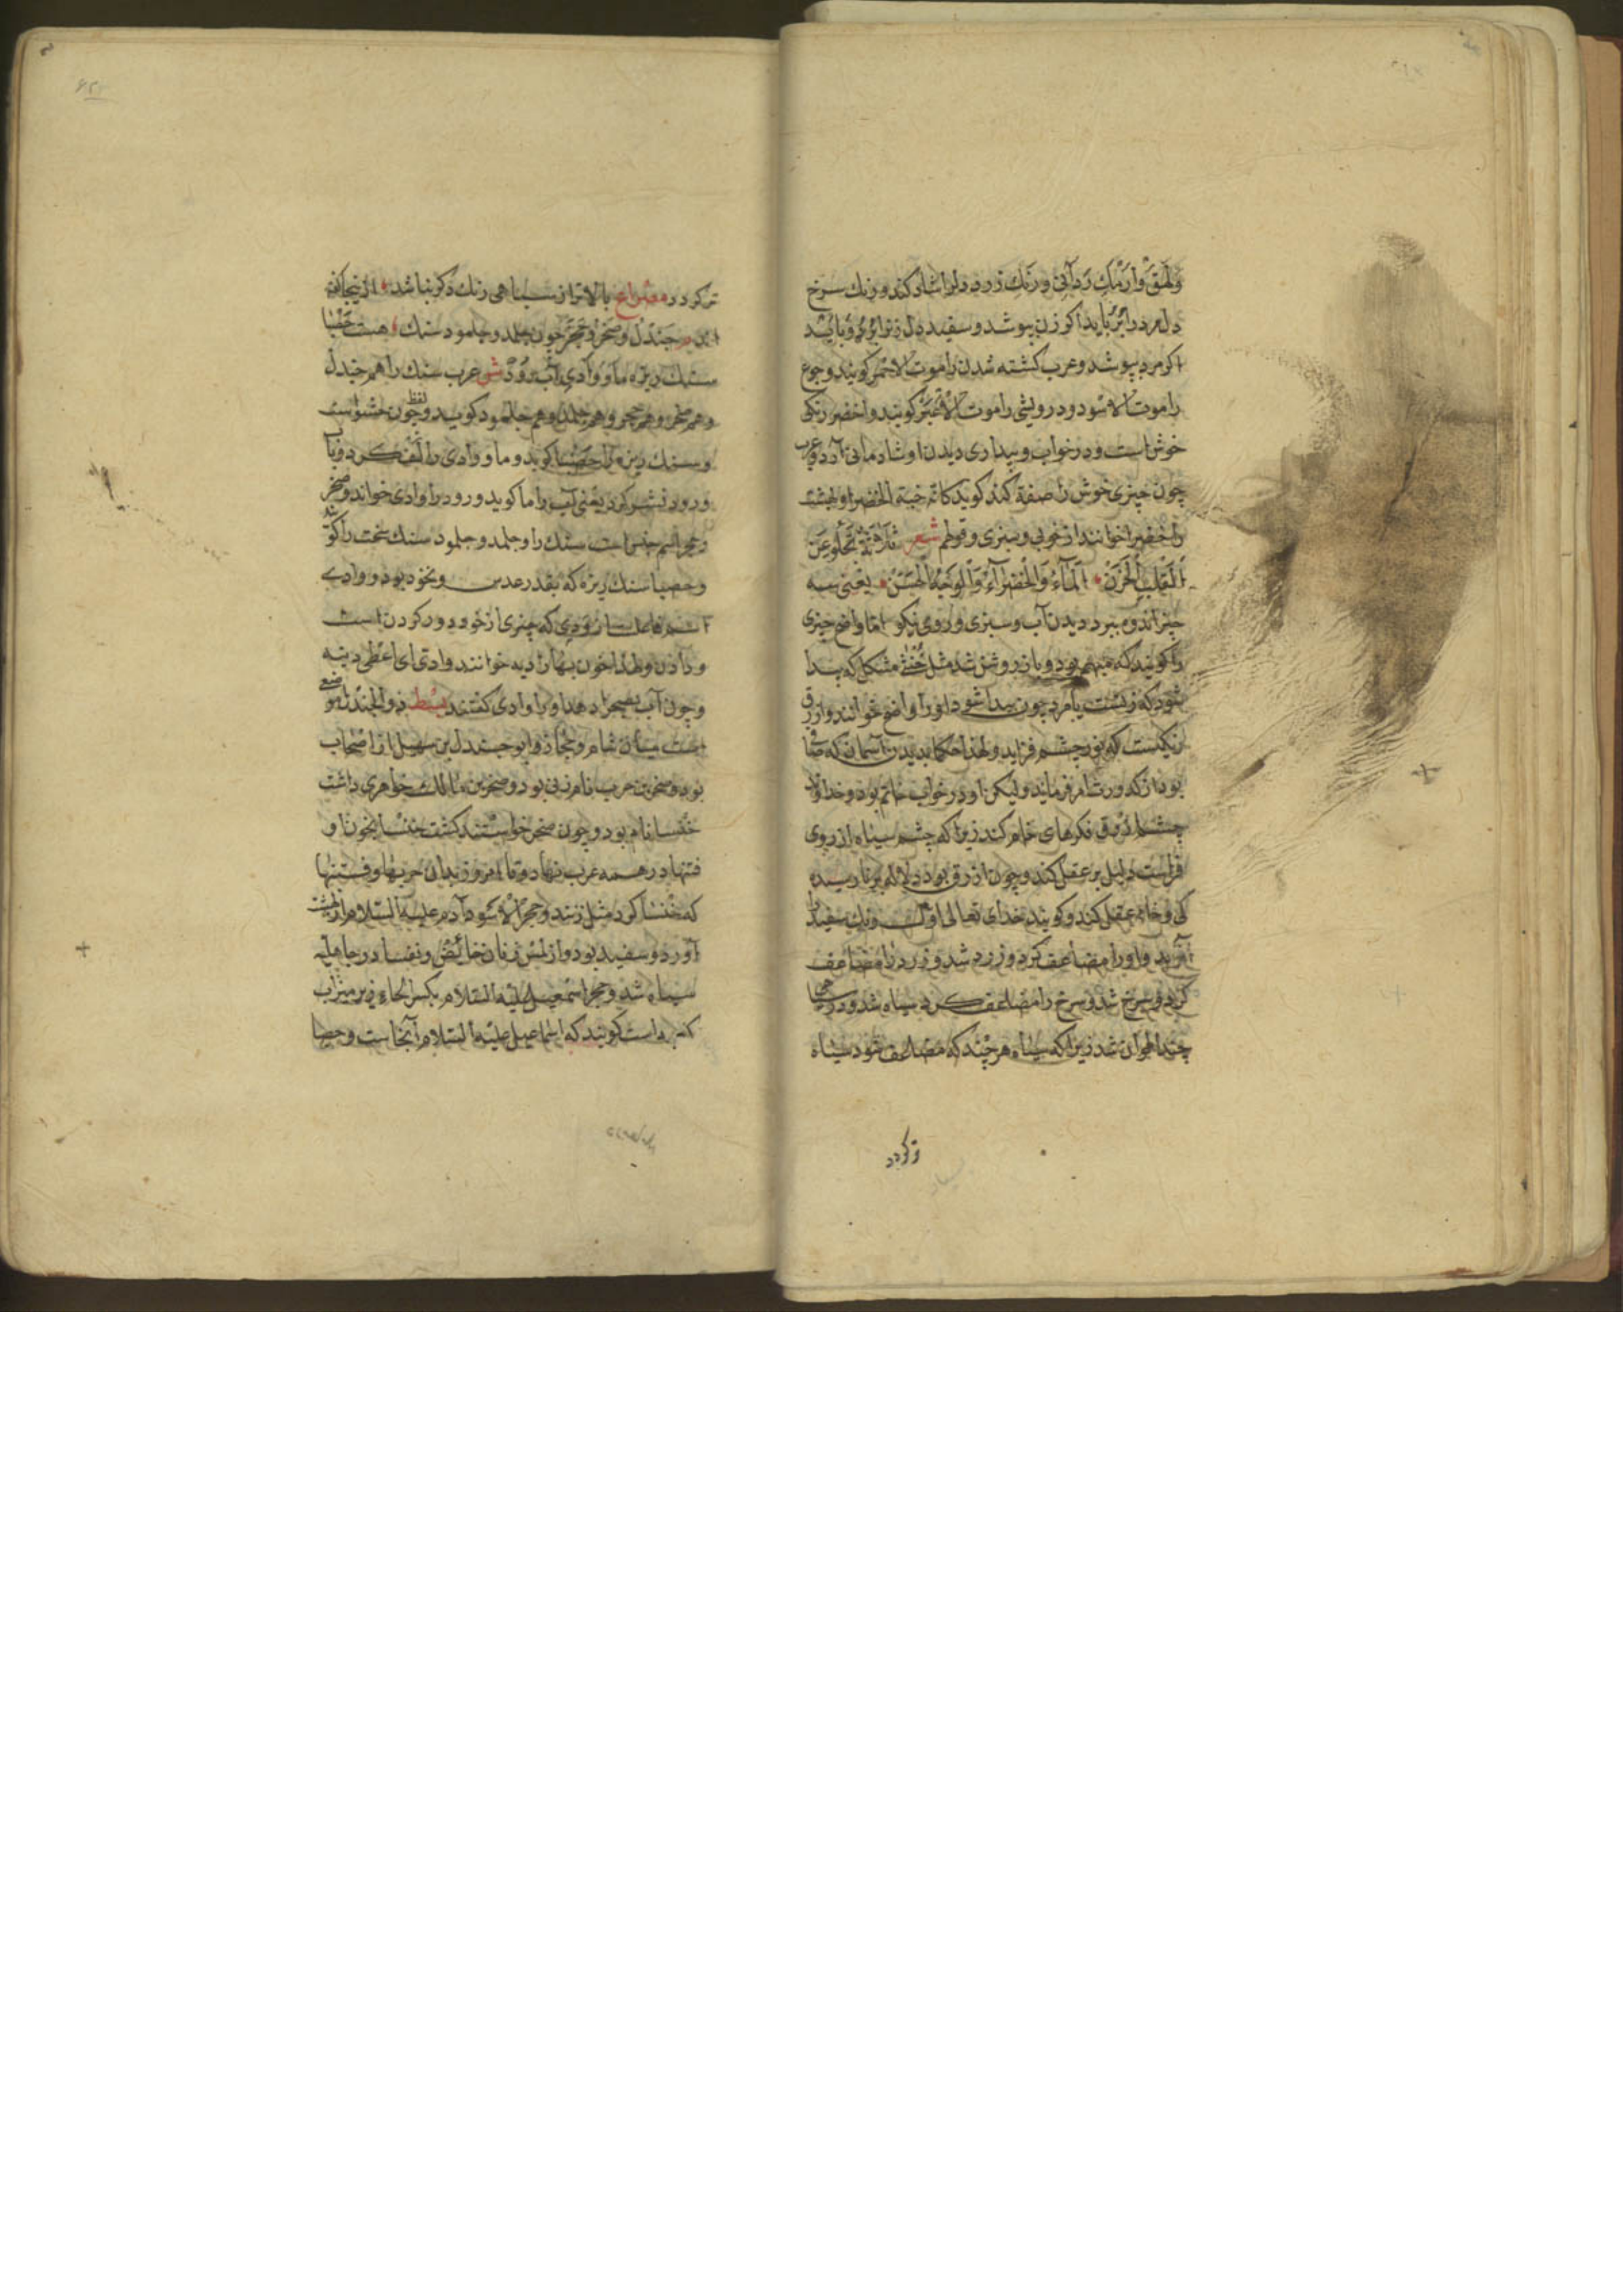 ولهق وارمک ردانی و رنک زرد دلرا شاد کند و رنک سرخ
دل مرد را برباید اکر زن بپوشد و سفید دل زنرا برباید
اکر مرد بپوشد و عرب کشته شدن را موت الاحمر کویند و جوع
را موت الاسود و درویشی را موت الاغبر کویند و اخضر رنکی
خوش است و در خواب و بیداری دیدن او شادمانی آرد و عرب
چون چیزی خوش را صفة کند کوید کانه خبة الخضرا و بهشت
را خضرا خوانند از خوبی و سبزی و قولهم شعر ثلاثة تجلو عن
القلب الحزن الماء والخضراء والوجه الحسن یعنی سه
چیز اندوه ببرد دیدن آب و سبزی و روی نیکو اما واضح چیزی
را کویند که مبهم بود و باز روشن شد مثل خنثی مشکل که پیدا
شود که زنست یا مرد چون پیدا شود انرا واضح خوانند و ازرق
رنکیست که نور چشم فزاید و لهذا حکما بدیدن آسمان که صافی
بود از کدورت امر فرمایند و لیکن او در خواب ماتم بود و خداوند
چشم ازرق فکرهای خام کند زیرا که چشم سیاه از روی
فراست دلیل بر عقل کند و چون ازرق بود دلالة بر نارسیده
کی و خامی عقل کند و کویند خدای تعالی اول رنک سفید را
آفرید و او را مضاعف کرد و زرد شد و زرد را مضاعف
کرد و سرخ شد و سرخ را مضاعف کرد سیاه شد و در سیاهی
چندالوان شد زیرا که سیاه هر چند که مضاعف شود سیاه
تر کردد
تر کردد مصراع بالاتر از سیاهی رنک دکر نباشد از اینجا کفته
اند جندل و صخر و حجر چون جلمد و جلمود سنک هست حصبا
سنک ریزه ما و وادی آب و رود ش عرب سنک را هم جندل
و هم صخر و هم حجر و هم جلمد و هم جلمود کوید و لفظ چون حشوا ست
و سنک ریزه را حصبا کوید و ما و وادی را لف کرد و بآب
و رود نشر کرد یعنی آب را ما کوید و رود را وادی خواند و صخر
و حجر اسم جنس است سنک را و جلمد و جلمود سنک سخت را کویند
و حصبا سنک ریزه که بقدر عدس و نخود بود و وادی
اسم فاعل است از ودی که چیزی از خود دور کردن است
و دادن و لهذا خون بها را دیه خوانند وادی ای اعطی دیته
و چون آب بصحرا دهد او را وادی کفتند بسط ذوالجندل موضعی
است میان شام و حجاز و ابو جندل بن سهیل از اصحاب
بود و صخر بن حرب نام زنی بود و صخر بن مالک خواهری داشت
خنسا نام بود و چون صخر خواستند کشت خنسا بخون او
فتنها در همه عرب نهاد و تا امروز بدان حربها و فتنها
که خنسا کرد مثل زنند و حجر الاسود آدم علیه السلام از بهشت
آورد و سفید بود و از لمس زنان حائض و نفسا در جاهلیه
سیاه شد و حجر اسمعیل علیه السلام بکسر الحاء زیر میزاب
کعبه است کویند که اسماعیل علیه السلام آنجاست و حصا